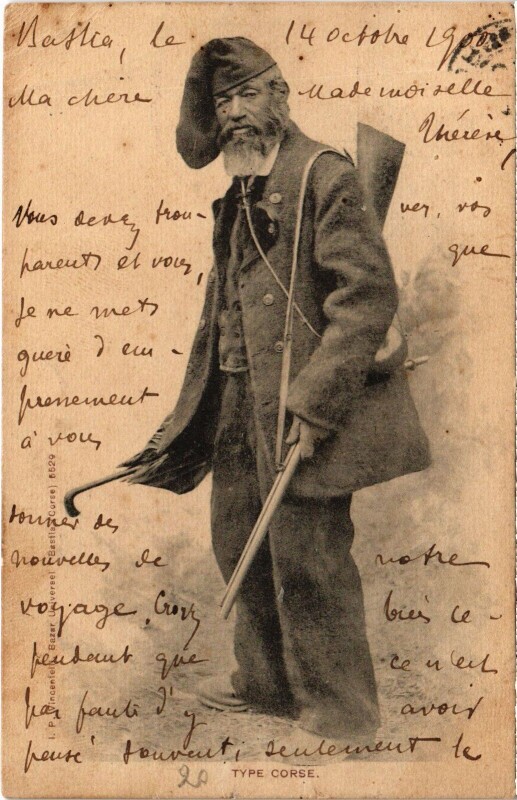 Bastia, le 14 octobre 1900
Ma chère Mademoiselle
Thérèse,
Vous devez trou- ver, vos
parents et vous, que
je ne mets
guère d'em-
pressement
à vous
donner des
nouvelles de notre
voyage. Croyez bien ce-
pendant que ce n'est
par faute d'y avoir
pensé souvent; seulement le
20
TYPE CORSE.
I. P. Vincentelli, Bazar Universel, Bastia (Corse) 5529